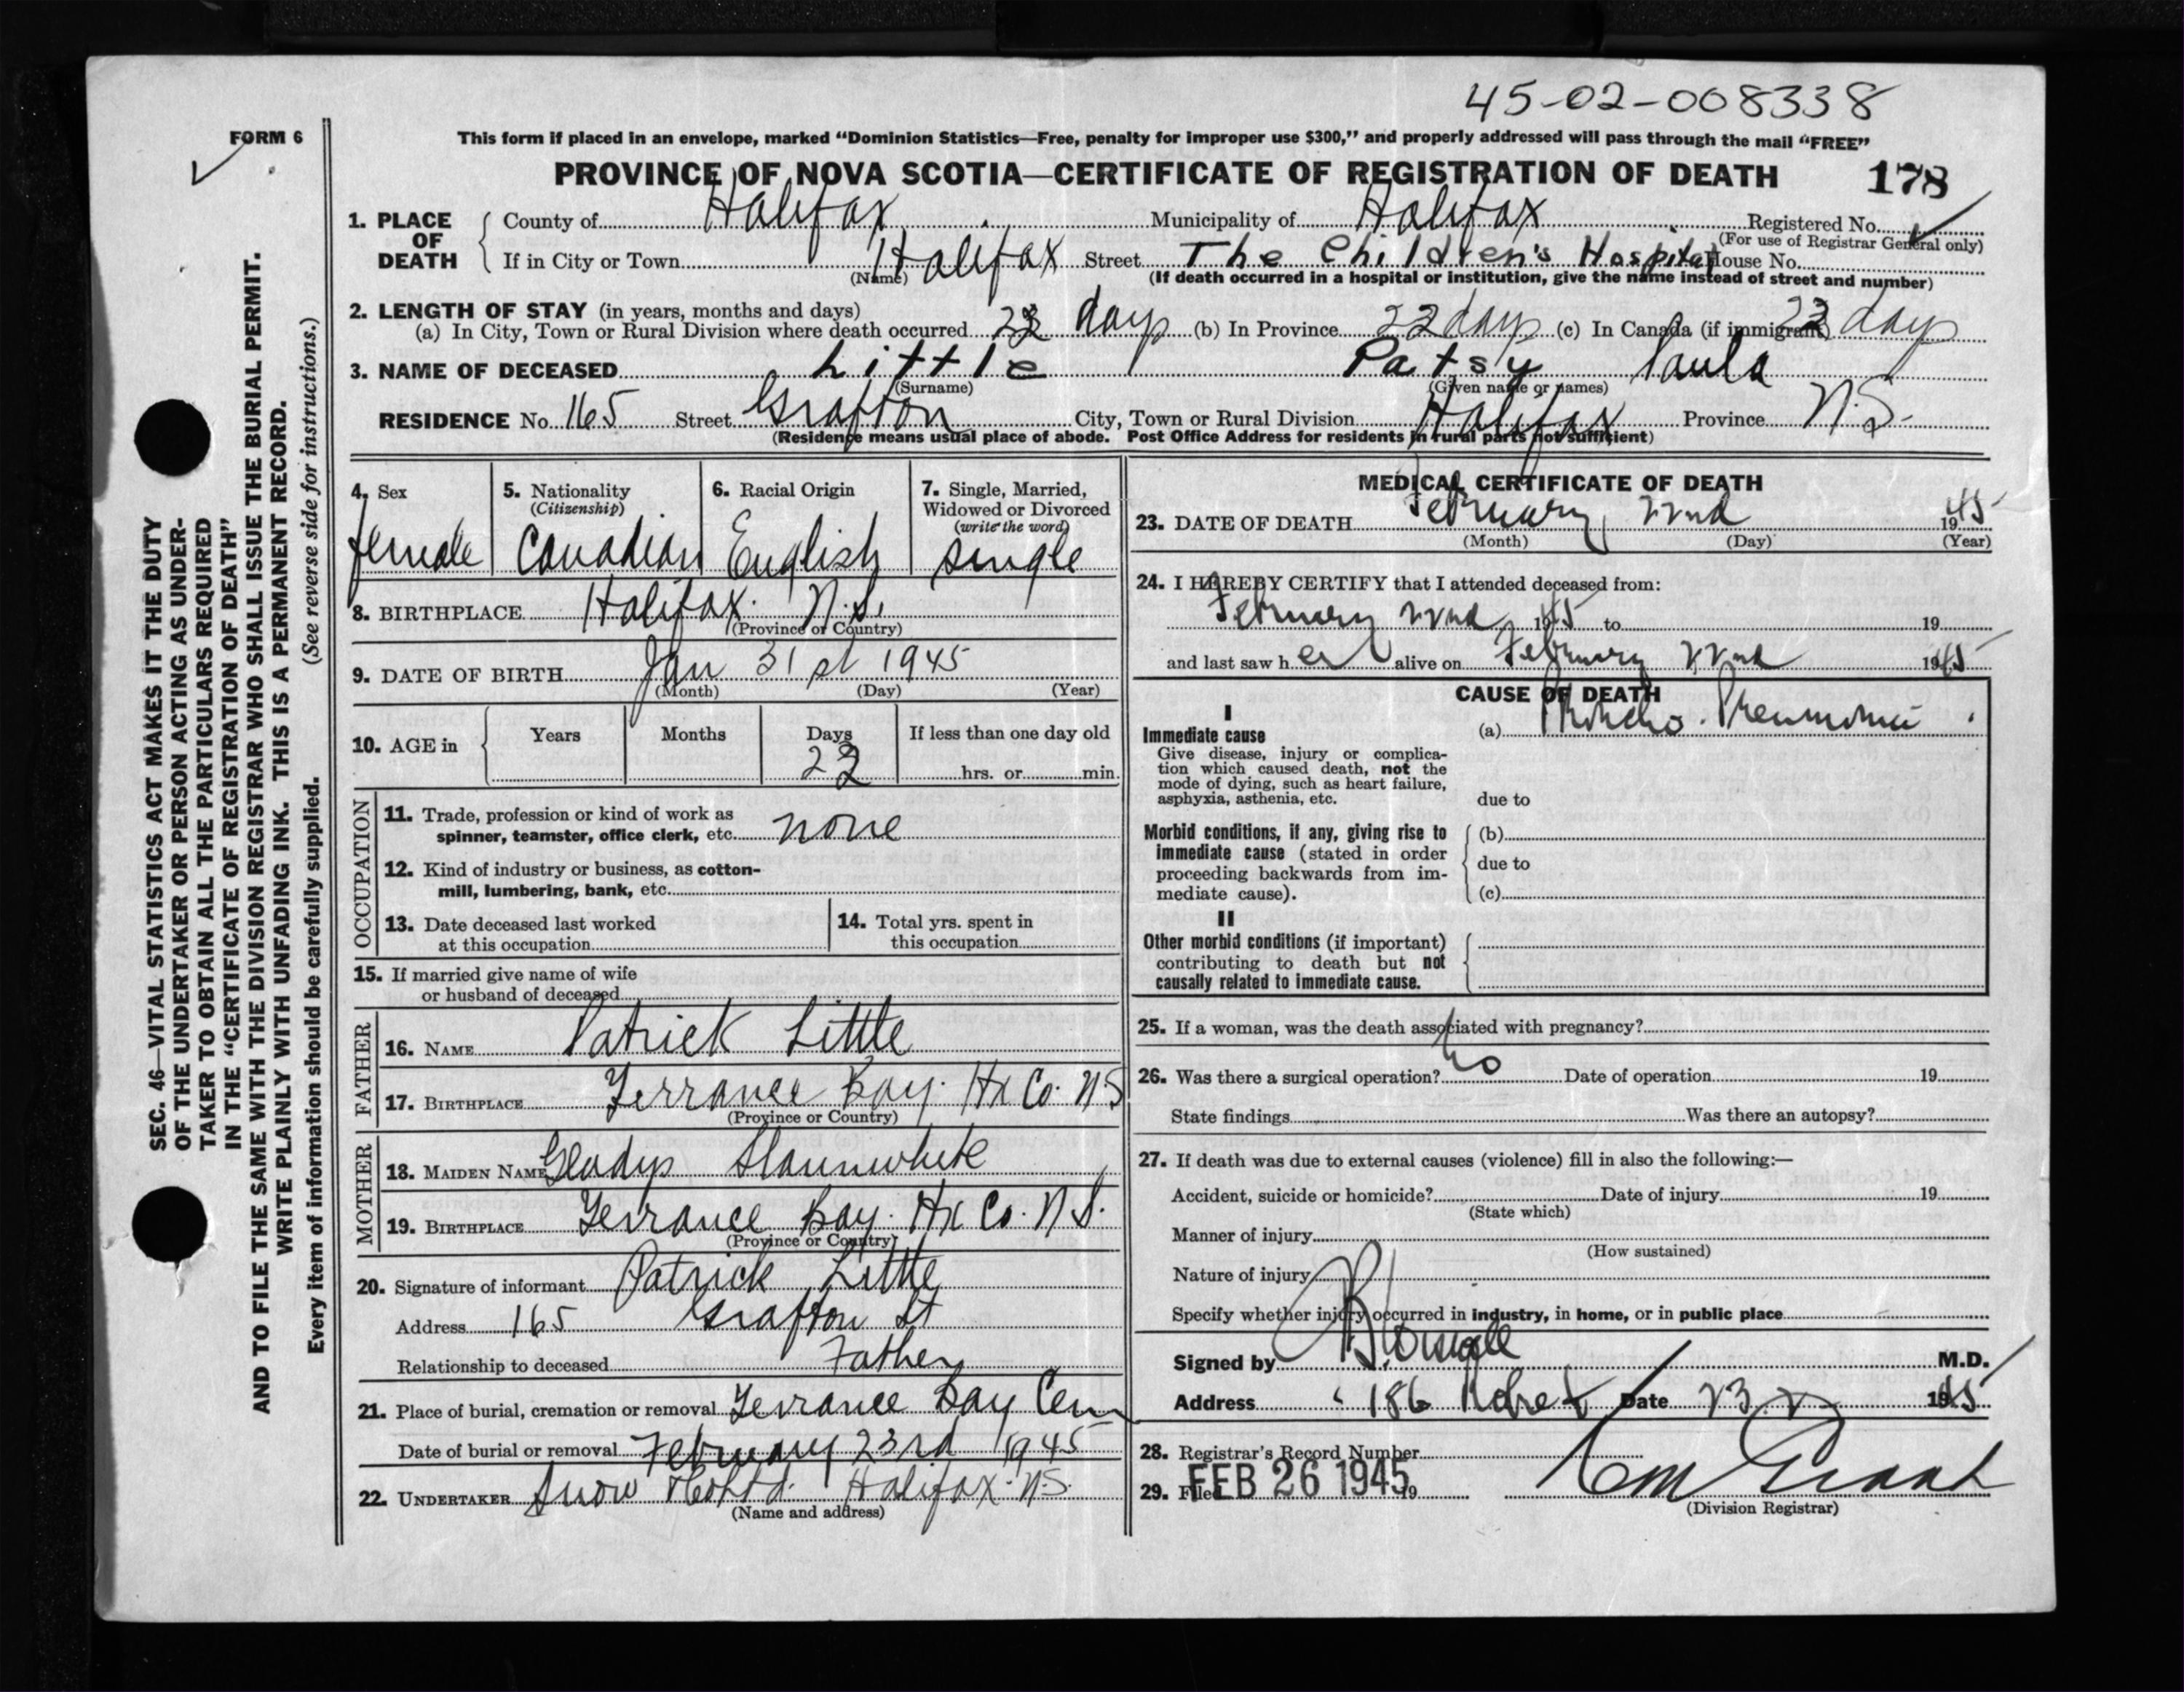 45-02-008338
FORM 6
This form if placed in an envelope, marked “Dominion Statistics—Free, penalty for improper use $300,” and properly addressed will pass through the mail “FREE”
PROVINCE OF NOVA SCOTIA—CERTIFICATE OF REGISTRATION OF DEATH 178
1. PLACE OF DEATH
County of Halifax Municipality of Halifax Registered No.
(For use of Registrar General only)
If in City or Town Halifax Street The Children's Hospital House No.
(Name) (If death occurred in a hospital or institution, give the name instead of street and number)
2. LENGTH OF STAY (in years, months and days)
(a) In City, Town or Rural Division where death occurred days (b) In Province days (c) In Canada (if immigrant) days
3. NAME OF DECEASED Little Patsy Paula
(Surname) (Given name or names)
RESIDENCE No. 165 Street Grafton City, Town or Rural Division Halifax Province N.S.
(Residence means usual place of abode. Post Office Address for residents in rural parts not sufficient)
4. Sex
female
5. Nationality
(Citizenship)
Canadian
6. Racial Origin
English
7. Single, Married,
Widowed or Divorced
(write the word)
single
8. BIRTHPLACE Halifax. N.S.
(Province or Country)
9. DATE OF BIRTH Jan 31st 1945
(Month) (Day) (Year)
10. AGE in
Years Months Days If less than one day old
hrs. or min.
OCCUPATION
11. Trade, profession or kind of work as
spinner, teamster, office clerk, etc. none
12. Kind of industry or business, as cotton-
mill, lumbering, bank, etc.
13. Date deceased last worked
at this occupation
14. Total yrs. spent in
this occupation
15. If married give name of wife
or husband of deceased
FATHER
16. NAME Patrick Little
17. BIRTHPLACE Terrance Bay. Hx Co. NS
(Province or Country)
MOTHER
18. MAIDEN NAME Gladys Slaunwhite
19. BIRTHPLACE Terrance Bay. Hx Co. N.S.
(Province or Country)
20. Signature of informant Patrick Little
Address 165 Grafton St
Relationship to deceased Father
21. Place of burial, cremation or removal Terrance Bay Cem
Date of burial or removal February 23rd 1945
22. UNDERTAKER Snow & Co Ltd. Halifax. N.S.
(Name and address)
MEDICAL CERTIFICATE OF DEATH
23. DATE OF DEATH February 22nd 1945
(Month) (Day) (Year)
24. I HEREBY CERTIFY that I attended deceased from:
February 22nd 1945 to 19
and last saw her alive on February 22nd 1945
CAUSE OF DEATH
I
Immediate cause
Give disease, injury or complica-
tion which caused death, not the
mode of dying, such as heart failure,
asphyxia, asthenia, etc.
(a) Broncho. Pneumonia.
due to
Morbid conditions, if any, giving rise to
immediate cause (stated in order
proceeding backwards from im-
mediate cause).
(b)
due to
(c)
II
Other morbid conditions (if important)
contributing to death but not
causally related to immediate cause.
25. If a woman, was the death associated with pregnancy?
26. Was there a surgical operation? no Date of operation 19
State findings Was there an autopsy?
27. If death was due to external causes (violence) fill in also the following:—
Accident, suicide or homicide? Date of injury 19
(State which)
Manner of injury
(How sustained)
Nature of injury
Specify whether injury occurred in industry, in home, or in public place
Signed by M.D.
Address 186 Date 23. 2 1945
28. Registrar's Record Number
29. Filed FEB 26 1945 19
(Division Registrar)
SEC. 46—VITAL STATISTICS ACT MAKES IT THE DUTY
OF THE UNDERTAKER OR PERSON ACTING AS UNDER-
TAKER TO OBTAIN ALL THE PARTICULARS REQUIRED
IN THE “CERTIFICATE OF REGISTRATION OF DEATH”
AND TO FILE THE SAME WITH THE DIVISION REGISTRAR WHO SHALL ISSUE THE BURIAL PERMIT.
WRITE PLAINLY WITH UNFADING INK. THIS IS A PERMANENT RECORD.
Every item of information should be carefully supplied. (See reverse side for instructions.)